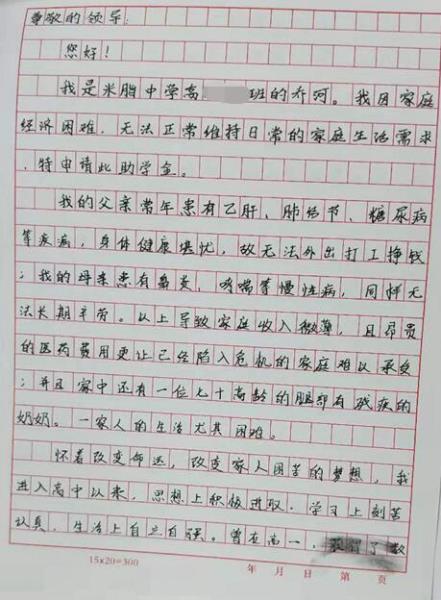 尊敬的领导:
您好!
我是米脂中学高 班的乔河。我因家庭
经济困难,无法正常维持日常的家庭生活需求
,特申请此助学金。
我的父亲常年患有乙肝、肺结节、糖尿病
等疾病,身体健康堪忧,故无法外出打工挣钱
;我的母亲患有鼻炎,哮喘等慢性病,同样无
法长期辛劳。以上导致家庭收入微薄,且昂贵
的医药费用更让已经陷入危机的家庭难以承受
;并且家中还有一位七十高龄的腿部有残疾的
奶奶。一家人的生活尤其困难。
怀着改变命运,改变家人困苦的梦想,我
进入高中以来,思想上积极进取,学习上刻苦
认真,生活上自立自强。曾在高一,获得了数
15×20=300 年 月 日 第 页